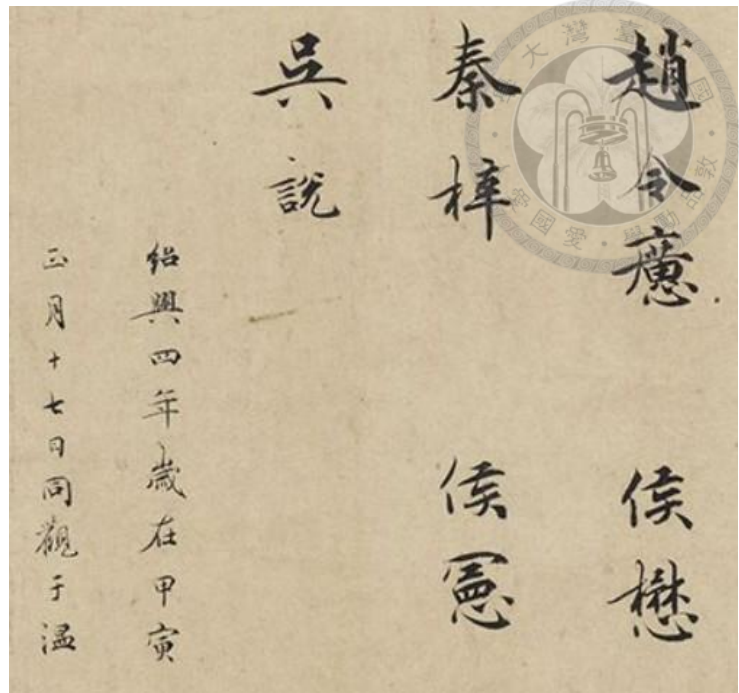 趙令懬 侯懋
秦梓 侯憲
吳說
紹興四年歲在甲寅
正月十七日同觀于溫